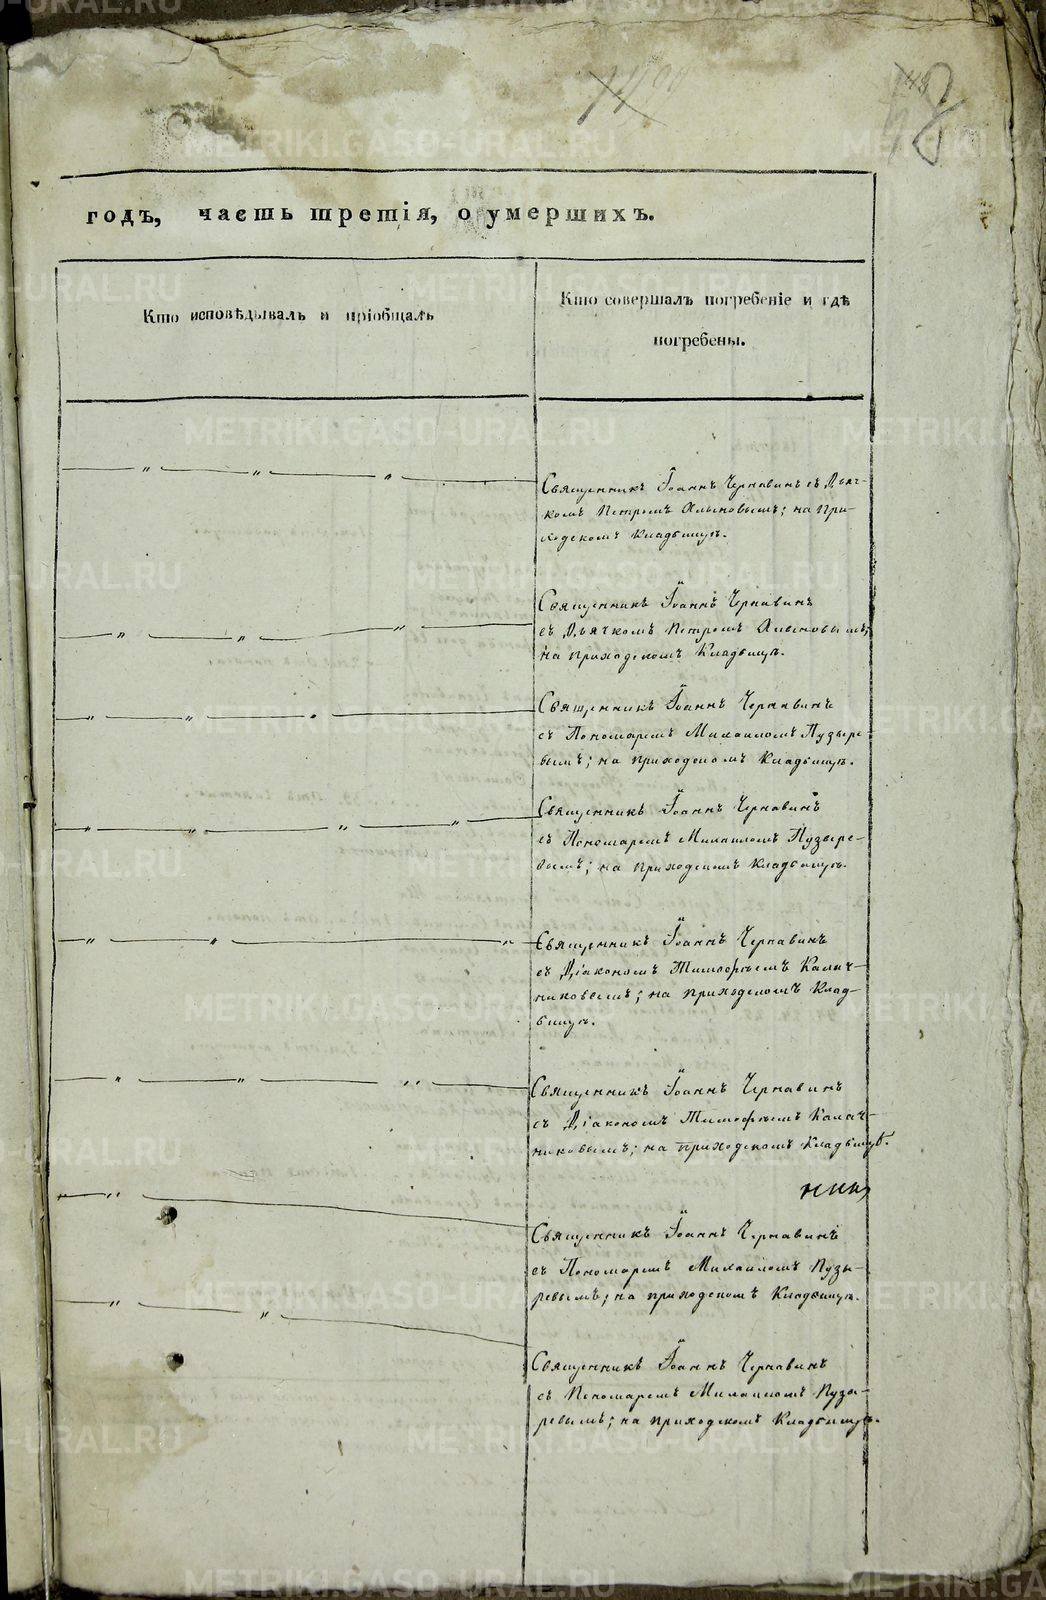 годъ, часть третія, о умершихъ.
Кто исповѣдывалъ и пріобщалъ
Кто совершалъ погребеніе и гдѣ
погребены.
Священникъ Іоаннъ Чернавинъ съ Дьяч-
комъ Петромъ Хлыновымъ; на при-
ходскомъ кладбищѣ.
Священникъ Іоаннъ Чернавинъ
съ Дьячкомъ Петромъ Хлыновымъ;
на приходскомъ кладбищѣ.
Священникъ Іоаннъ Чернавинъ
съ Пономаремъ Михаиломъ Пузыре-
вымъ; на приходскомъ кладбищѣ.
Священникъ Іоаннъ Чернавинъ
съ Пономаремъ Михаиломъ Пузыре-
вымъ; на приходскомъ кладбищѣ.
Священникъ Іоаннъ Чернавинъ
съ Діакономъ Тимофѣемъ Калач-
никовымъ; на приходскомъ клад-
бищѣ.
Священникъ Іоаннъ Чернавинъ
съ Діакономъ Тимофѣемъ Калач-
никовымъ; на приходскомъ кладбищѣ.
Священникъ Іоаннъ Чернавинъ
съ Пономаремъ Михаиломъ Пузы-
ревымъ; на приходскомъ кладбищѣ.
Священникъ Іоаннъ Чернавинъ
съ Пономаремъ Михаиломъ Пузы-
ревымъ; на приходскомъ кладбищѣ.
METRIKI.GASO-URAL.RU